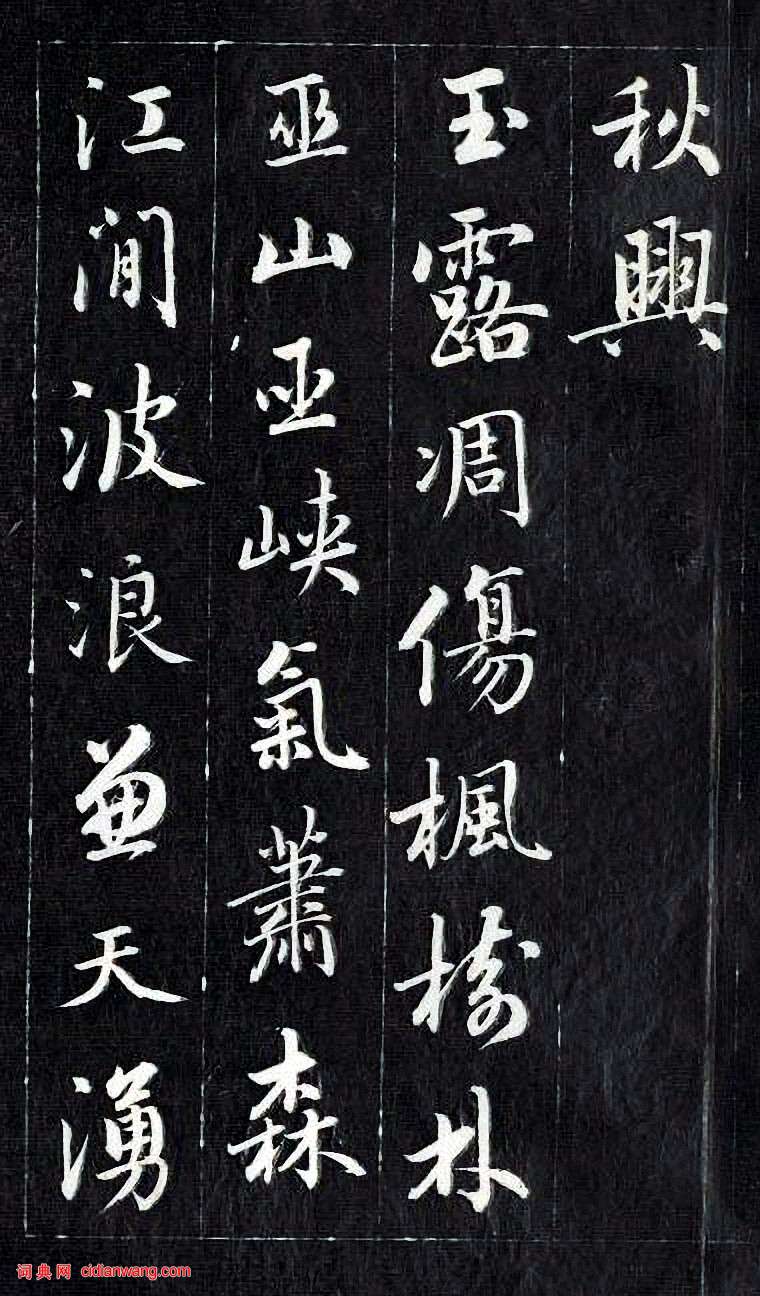 秋興
玉露凋傷楓樹林
巫山巫峽氣蕭森
江間波浪兼天湧
词典网 cidianwang.com